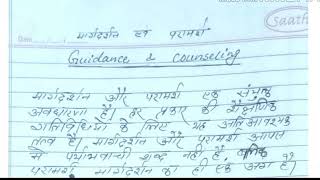 saath
मार्गदर्शन एवं परामर्श
Guidance & Counseling
मार्गदर्शन और परामर्श एक
अवधारणा है। हर प्रकार की शैक्षणिक
गतिविधियों के लिए यह अति आवश्यक
तत्व है। मार्गदर्शन और परामर्श आपस
में पर्यायवाची शब्द नहीं है
परामर्श मार्गदर्शन का ही एक अंश है।